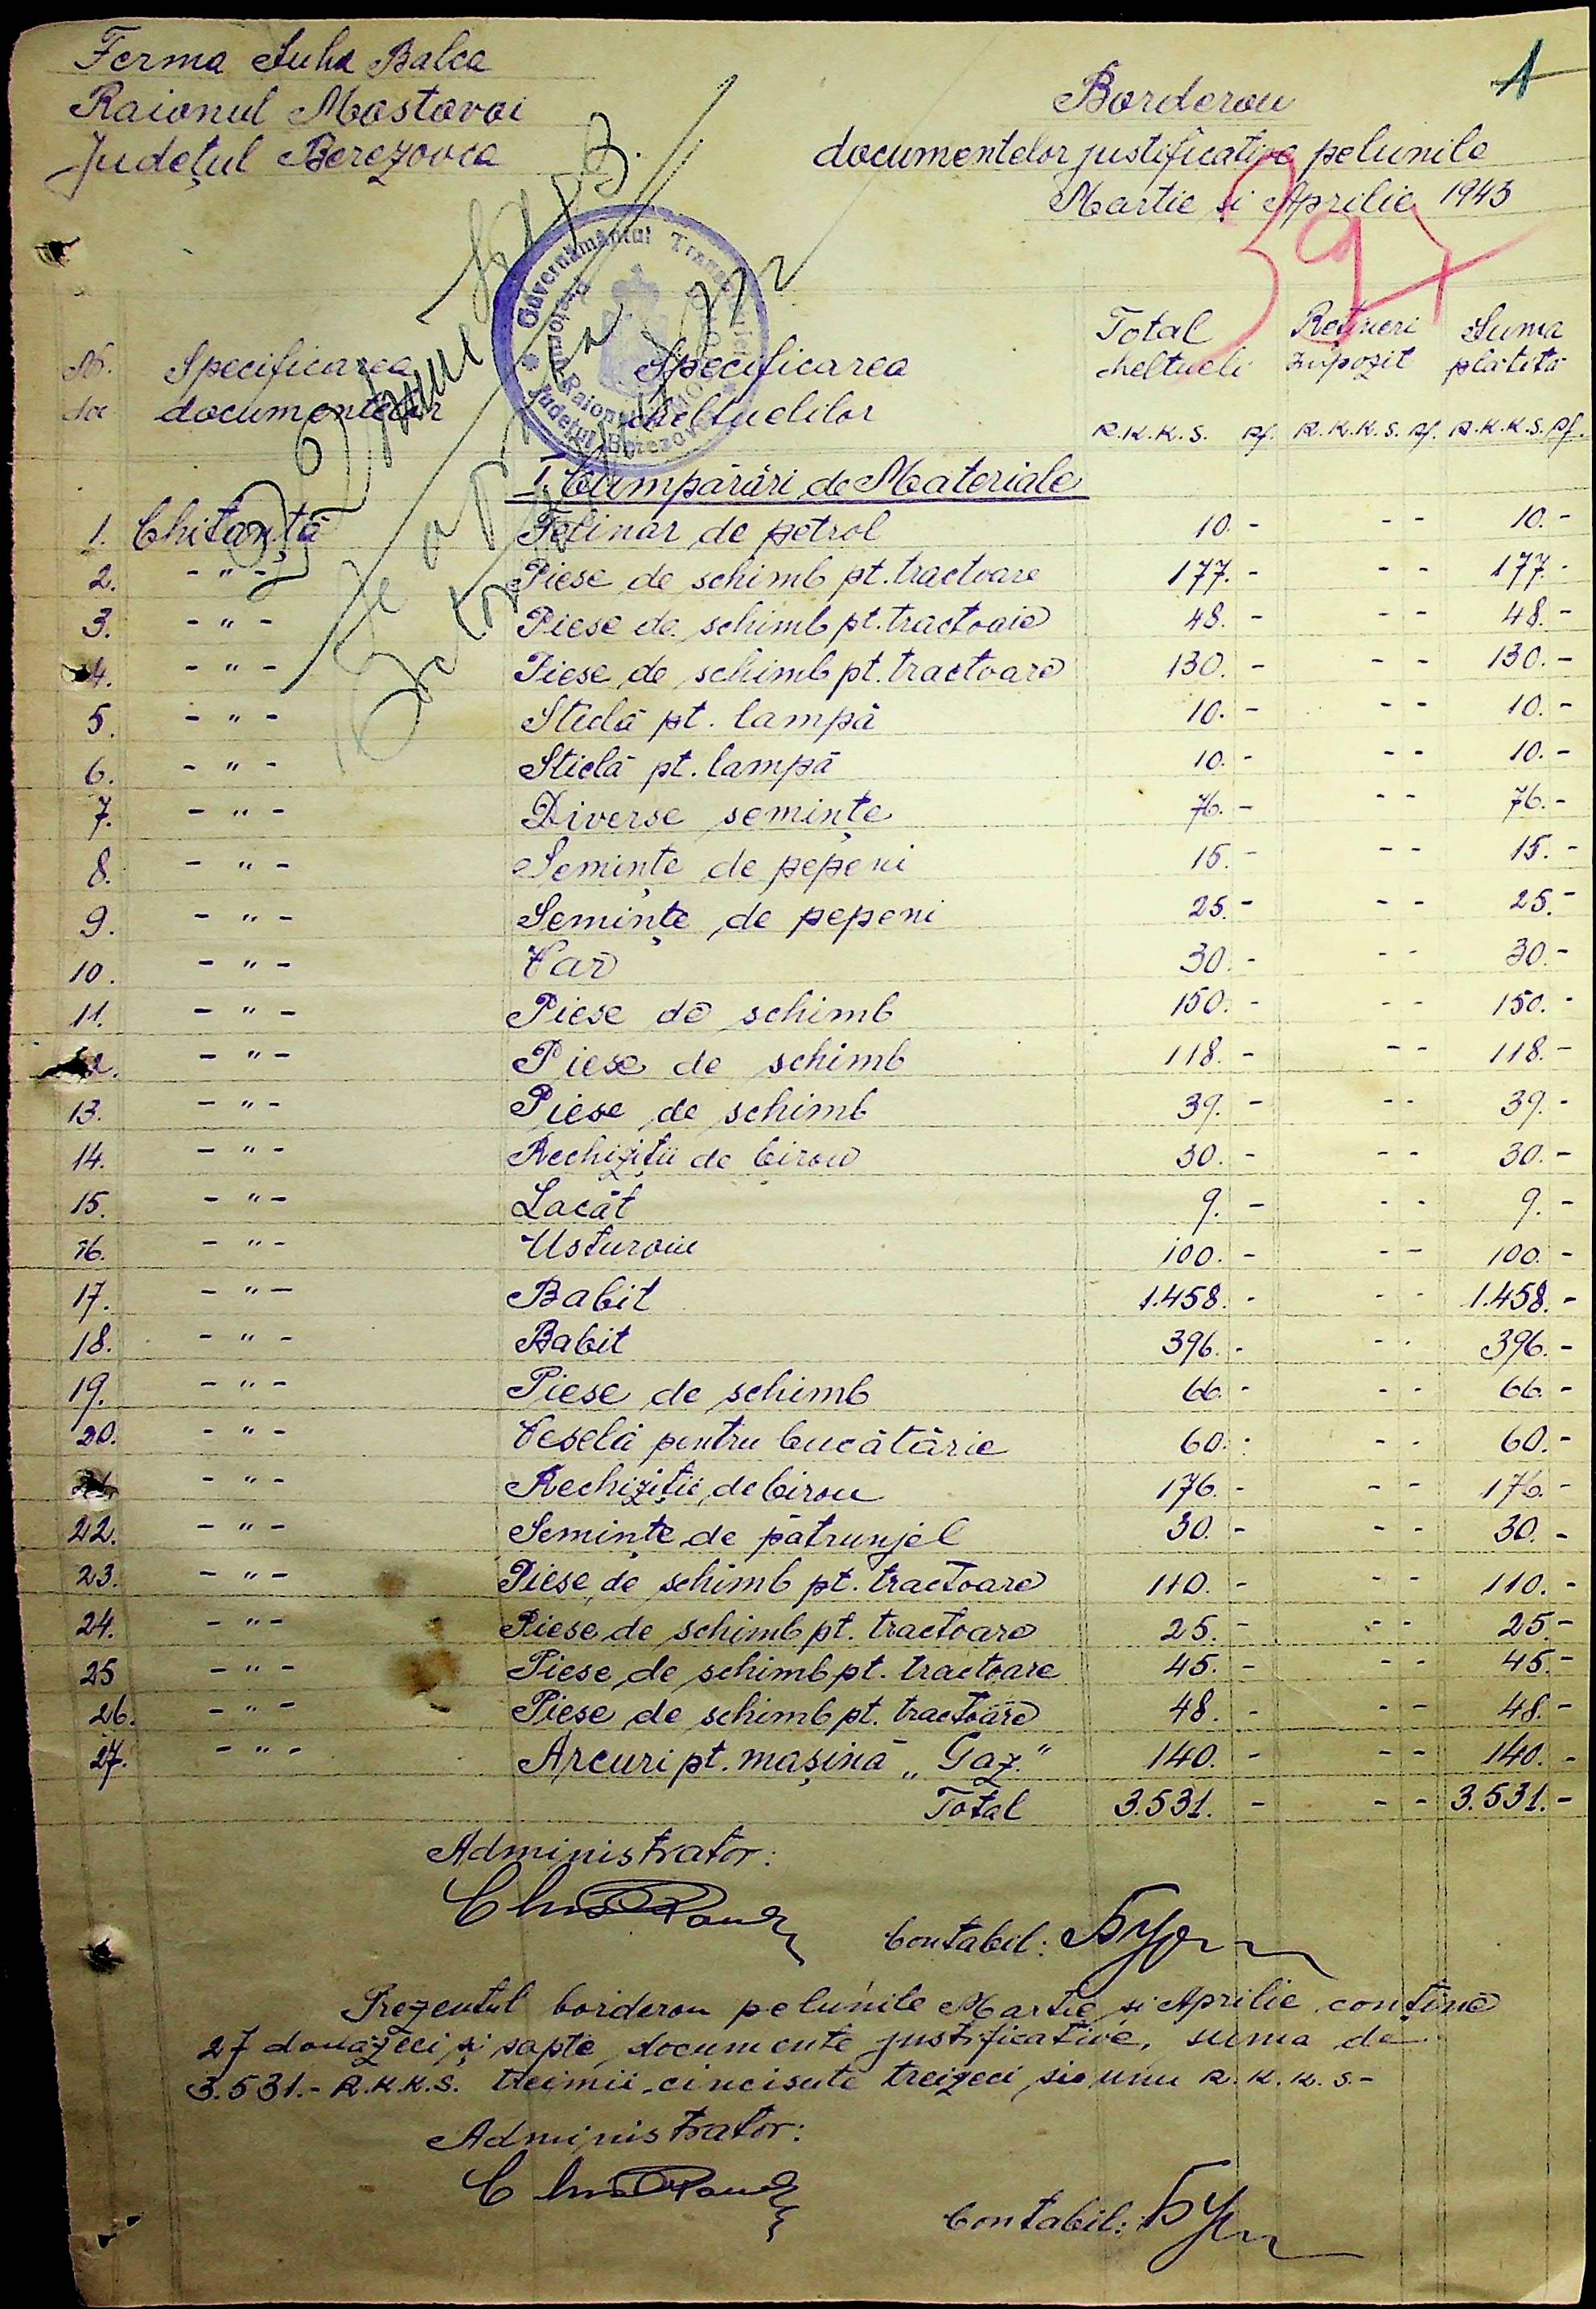 Ferma Suha Balca
Raionul Mostovoi
Județul Berezovca
1
Borderou
documentelor justificative pe lunile
Martie și Aprilie 1943
397
Guvernământul Transnistriei
Raionul
Județul Berezovca
Nr. Specificarea Specificarea Total Rețineri Suma
documentelor cheltuelilor cheltueli impozit plătită
R.K.K.S. Rf. R.K.K.S. Rf. R.K.K.S. Rf.
I. Cumpărări de Materiale
1. Chitanță Felinar de petrol 10. - - - 10. -
2. - " - Piese de schimb pt. tractoare 177. - - - 177. -
3. - " - Piese de schimb pt. tractoare 48. - - - 48. -
4. - " - Piese de schimb pt. tractoare 130. - - - 130. -
5. - " - Sticlă pt. lampă 10. - - - 10. -
6. - " - Sticlă pt. lampă 10. - - - 10. -
7. - " - Diverse semințe 76. - - - 76. -
8. - " - Semințe de pepeni 15. - - - 15. -
9. - " - Semințe de pepeni 25. - - - 25. -
10. - " - Var 30. - - - 30. -
11. - " - Piese de schimb 150. - - - 150. -
12. - " - Piese de schimb 118. - - - 118. -
13. - " - Piese de schimb 39. - - - 39. -
14. - " - Rechiziții de birou 30. - - - 30. -
15. - " - Lacăt 9. - - - 9. -
16. - " - Usturoiu 100. - - - 100. -
17. - " - Babit 1.458. - - - 1.458. -
18. - " - Babit 396. - - - 396. -
19. - " - Piese de schimb 66. - - - 66. -
20. - " - Veselă pentru bucătărie 60. - - - 60. -
21. - " - Rechiziții de birou 176. - - - 176. -
22. - " - Semințe de pătrunjel 30. - - - 30. -
23. - " - Piese de schimb pt. tractoare 110. - - - 110. -
24. - " - Piese de schimb pt. tractoare 25. - - - 25. -
25 - " - Piese de schimb pt. tractoare 45. - - - 45. -
26. - " - Piese de schimb pt. tractoare 48. - - - 48. -
27. - " - Arcuri pt. mașină „Gaz" 140. - - - 140. -
Total 3.531. - - - 3.531. -
Administrator:
Contabil:
Prezentul borderou pe lunile Martie și Aprilie conține
27 douăzeci și șapte documente justificative, suma de
3.531.- R.K.K.S. treimii cincisute treizeci și unu R.K.K.S.-
Administrator:
Contabil: